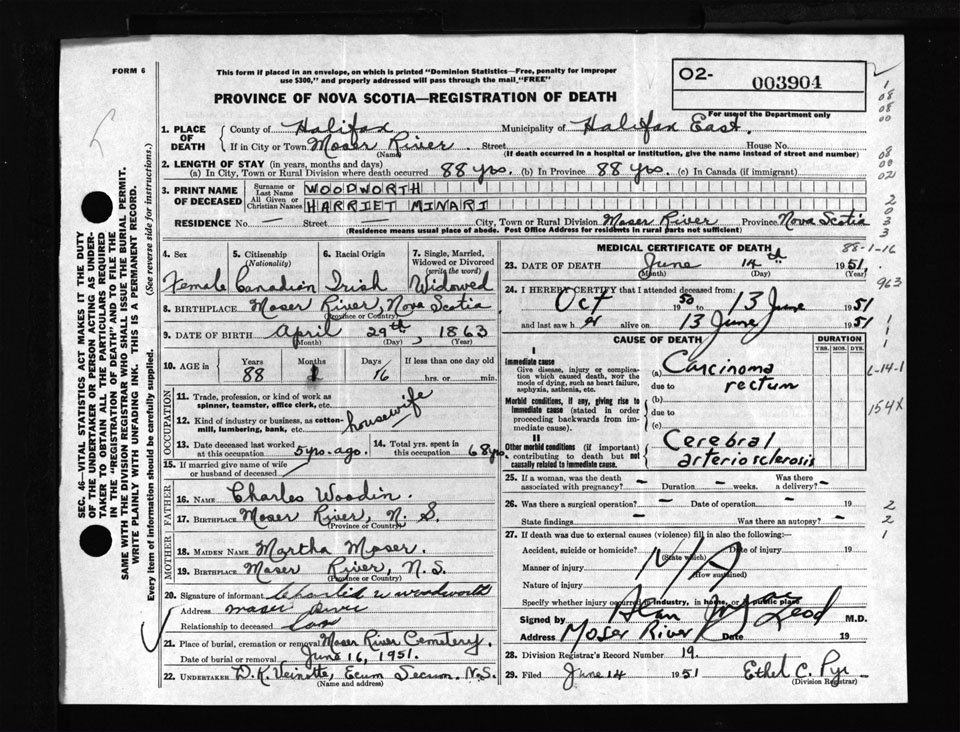 FORM 6
This form if placed in an envelope, on which is printed "Dominion Statistics—Free, penalty for improper
use $300," and properly addressed will pass through the mail "FREE"
PROVINCE OF NOVA SCOTIA—REGISTRATION OF DEATH
02- 003904
For use of the Department only
1. PLACE OF DEATH { County of Halifax Municipality of Halifax East.
If in City or Town Moser River Street House No.
(Name) (If death occurred in a hospital or institution, give the name instead of street and number)
2. LENGTH OF STAY (in years, months and days)
(a) In City, Town or Rural Division where death occurred 88 yrs. (b) In Province 88 yrs. (c) In Canada (if immigrant)
3. PRINT NAME OF DECEASED { Surname or Last Name WOODWORTH
All Given or Christian Names HARRIET MINARI
RESIDENCE No. — Street — City, Town or Rural Division Moser River Province Nova Scotia
(Residence means usual place of abode. Post Office Address for residents in rural parts not sufficient)
4. Sex 5. Citizenship (Nationality) 6. Racial Origin 7. Single, Married, Widowed or Divorced (write the word)
Female Canadian Irish Widowed
8. BIRTHPLACE Moser River, Nova Scotia
(Province or Country)
9. DATE OF BIRTH April 29th, 1863
(Month) (Day) (Year)
10. AGE in { Years Months Days If less than one day old
88 1 16 hrs. or min.
OCCUPATION
11. Trade, profession, or kind of work as spinner, teamster, office clerk, etc.
12. Kind of industry or business, as cotton-mill, lumbering, bank, etc. housewife
13. Date deceased last worked at this occupation 5 yrs. ago. 14. Total yrs. spent in this occupation 68 yrs.
15. If married give name of wife or husband of deceased
FATHER
16. NAME Charles Woodin.
17. BIRTHPLACE Moser River, N. S.
(Province or Country)
MOTHER
18. MAIDEN NAME Martha Moser.
19. BIRTHPLACE Moser River, N.S.
(Province or Country)
20. Signature of informant Charlie W Woodworth
Address Moser River
Relationship to deceased Son
21. Place of burial, cremation or removal Moser River Cemetery.
Date of burial or removal June 16, 1951.
22. UNDERTAKER D.K. Veinotte, Ecum Secum. N.S.
(Name and address)
MEDICAL CERTIFICATE OF DEATH 88-1-16
23. DATE OF DEATH June 14th 1951.
(Month) (Day) (Year)
24. I HEREBY CERTIFY that I attended deceased from:
Oct 1950 to 13 June 1951
and last saw her alive on 13 June 1951
CAUSE OF DEATH DURATION
YRS. MOS. DYS.
I
Immediate cause
Give disease, injury or complication which caused death, NOT the mode of dying, such as heart failure, asphyxia, asthenia, etc.
(a) Carcinoma rectum
due to
Morbid conditions, if any, giving rise to immediate cause (stated in order proceeding backwards from immediate cause).
(b)
due to
(c)
II
Other morbid conditions (if important) contributing to death but not causally related to immediate cause.
Cerebral arteriosclerosis
25. If a woman, was the death associated with pregnancy? — Duration — weeks. Was there a delivery? —
26. Was there a surgical operation? — Date of operation — 19
State findings — Was there an autopsy? —
27. If death was due to external causes (violence) fill in also the following:
Accident, suicide or homicide? Date of injury 19
(State which)
Manner of injury N/A
(How sustained)
Nature of injury
Specify whether injury occurred in industry, in home, or public place
Signed by Alan MacLeod M.D.
Address Moser River Date 19
28. Division Registrar's Record Number 19.
29. Filed June 14 1951 Ethel C. Pye
(Division Registrar)
SEC. 46—VITAL STATISTICS ACT MAKES IT THE DUTY
OF THE UNDERTAKER OR PERSON ACTING AS UNDER-
TAKER TO OBTAIN ALL THE PARTICULARS REQUIRED
IN THE "REGISTRATION OF DEATH" AND TO FILE THE
SAME WITH THE DIVISION REGISTRAR WHO SHALL ISSUE THE BURIAL PERMIT.
WRITE PLAINLY WITH UNFADING INK. THIS IS A PERMANENT RECORD.
Every item of information should be carefully supplied. (See reverse side for instructions.)
1
08
08
00
08
00
02
2
0
3
3
963
1
1
1-14-1
154X
2
2
1